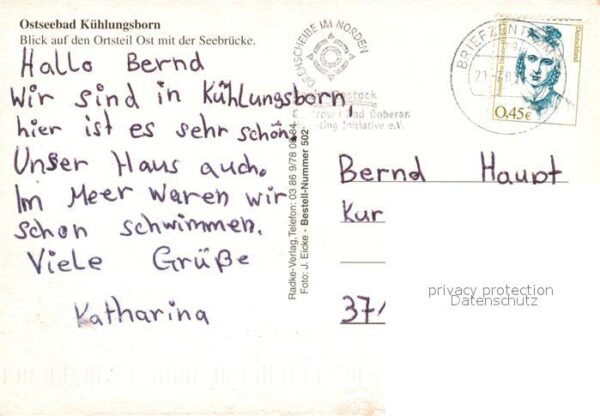 Ostseebad Kühlungsborn
Blick auf den Ortsteil Ost mit der Seebrücke.
Hallo Bernd
Wir sind in Kühlungsborn,
hier ist es sehr schön.
Unser Haus auch.
Im Meer waren wir
schon schwimmen.
Viele Grüße
Katharina
Radke-Verlag, Telefon: 03 86 9/78 02 84
Foto: J. Eicke - Bestell-Nummer 502
DREHSCHEIBE IM NORDEN
Rostock
Bad Doberan
Initiative e.V.
BRIEFZENTRUM
Deutschland
0,45€
Bernd Haupt
Kur
37
privacy protection
Datenschutz